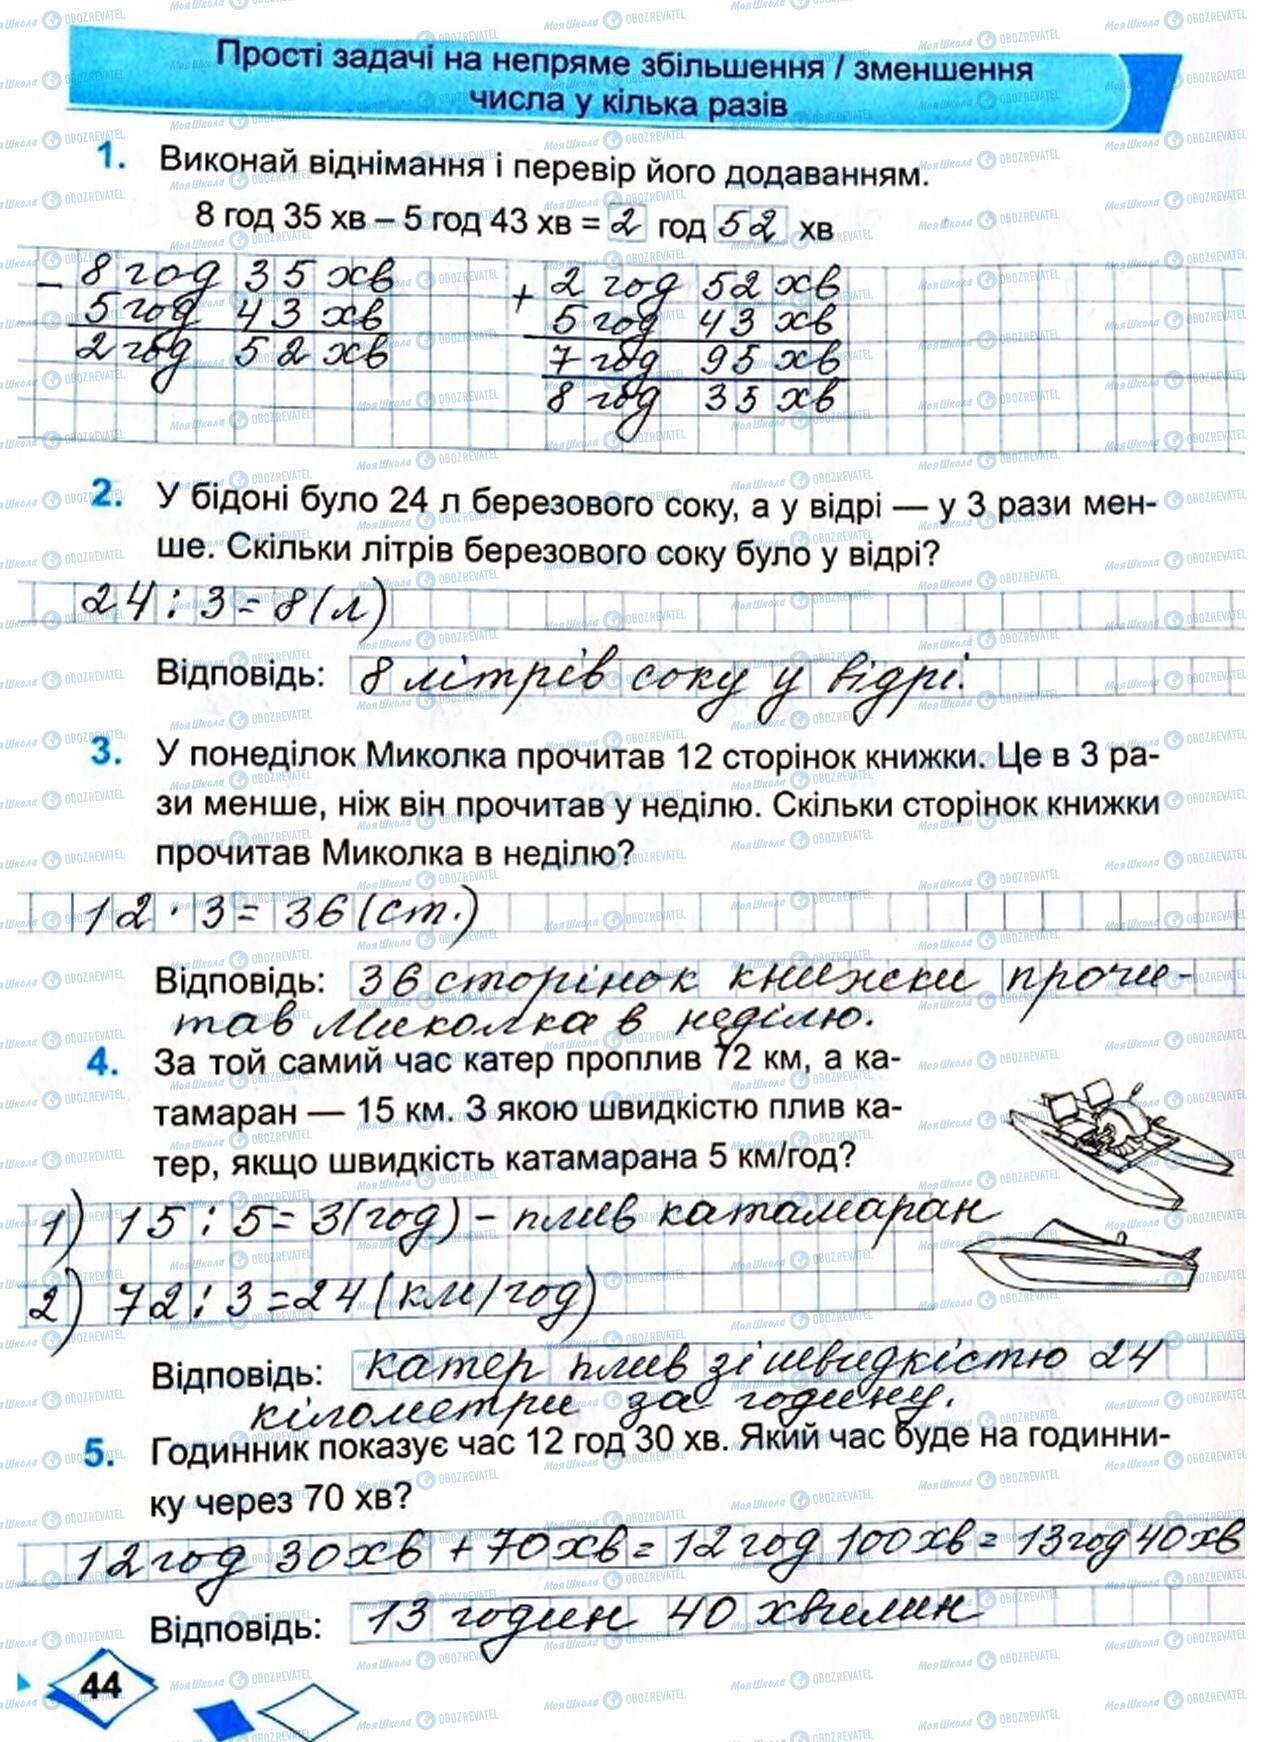 Прості задачі на непряме збільшення / зменшення
числа у кілька разів
1. Виконай віднімання і перевір його додаванням.
8 год 35 хв – 5 год 43 хв = 2 год 52 хв
– 8 год 35 хв
5 год 43 хв
2 год 52 хв
+ 2 год 52 хв
5 год 43 хв
7 год 95 хв
8 год 35 хв
2. У бідоні було 24 л березового соку, а у відрі — у 3 рази мен-
ше. Скільки літрів березового соку було у відрі?
24 : 3 = 8 (л)
Відповідь: 8 літрів соку у відрі.
3. У понеділок Миколка прочитав 12 сторінок книжки. Це в 3 ра-
зи менше, ніж він прочитав у неділю. Скільки сторінок книжки
прочитав Миколка в неділю?
12 · 3 = 36 (ст.)
Відповідь: 36 сторінок книжки прочи-
тав Миколка в неділю.
4. За той самий час катер проплив 72 км, а ка-
тамаран — 15 км. З якою швидкістю плив ка-
тер, якщо швидкість катамарана 5 км/год?
1) 15 : 5 = 3 (год) – плив катамаран
2) 72 : 3 = 24 (км/год)
Відповідь: катер плив зі швидкістю 24
кілометри за годину.
5. Годинник показує час 12 год 30 хв. Який час буде на годинни-
ку через 70 хв?
12 год 30 хв + 70 хв = 12 год 100 хв = 13 год 40 хв
Відповідь: 13 годин 40 хвилин
44
МояШкола OBOZREVATEL